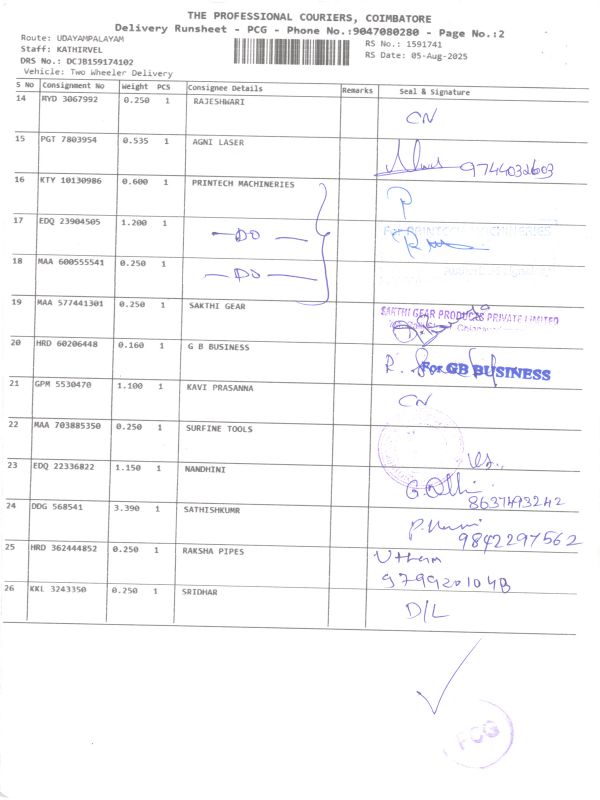 THE PROFESSIONAL COURIERS, COIMBATORE
Delivery Runsheet - PCG - Phone No.:9047080280 - Page No.:2
Route: UDAYAMPALAYAM
Staff: KATHIRVEL
DRS No.: DCJB159174102
Vehicle: Two Wheeler Delivery
RS No.: 1591741
RS Date: 05-Aug-2025
S No Consignment No Weight PCS Consignee Details Remarks Seal & Signature
14 MYD 3067992 0.250 1 RAJESHWARI CN
15 PGT 7803954 0.535 1 AGNI LASER 9744032603
16 KTY 10130986 0.600 1 PRINTECH MACHINERIES
17 EDQ 23904505 1.200 1 -DO- For PRINTECH MACHINERIES
18 MAA 600555541 0.250 1 -DO-
19 MAA 577441301 0.250 1 SAKTHI GEAR SAKTHI GEAR PRODUCTS PRIVATE LIMITED
20 HRD 60206448 0.160 1 G B BUSINESS For GB BUSINESS
21 GPM 5530470 1.100 1 KAVI PRASANNA CN
22 MAA 703885350 0.250 1 SURFINE TOOLS
23 EDQ 22336822 1.150 1 NANDHINI 8637493242
24 DDG 568541 3.390 1 SATHISHKUMR 9842297562
25 HRD 362444852 0.250 1 RAKSHA PIPES
26 KKL 3243350 0.250 1 SRIDHAR D/L
PCG